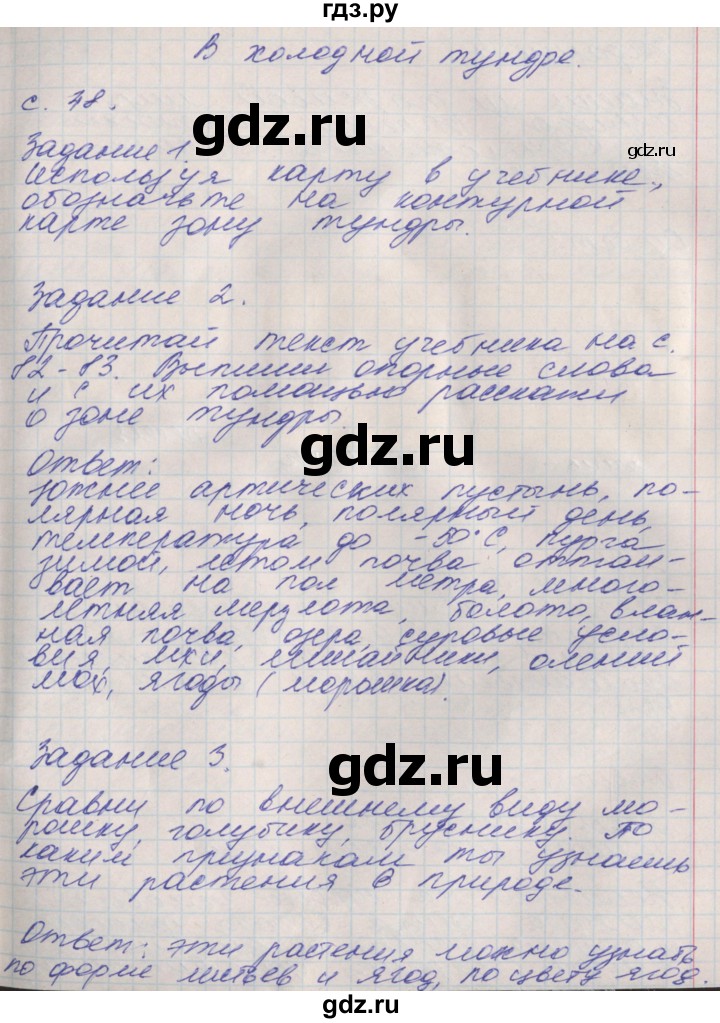 гдз.ру
В холодной тундре.
с. 38.
gdz.ru
Задание 1.
Используя карту в учебнике,
обозначьте на контурной
карте зону тундры.
Задание 2.
Прочитай текст учебника на с.
82-83. Выпиши опорные слова
и с их помощью расскажи
о зоне тундры.
gdz.ru
Ответ:
южнее арктических пустынь, по-
лярная ночь, полярный день,
температура до -50°С, пурга
зимой, летом почва оттаи-
вает на пол метра, много-
летная мерзлота, болото, влаж-
ная почва, озера, суровые усло-
вия, мхи, лишайники, олений
мох, ягоды (морошка).
gdz.ru
Задание 3.
Сравни по внешнему виду мо-
рошку, голубику, бруснику. По
каким признакам ты узнаешь
эти растения в природе.
gdz.ru
Ответ: эти растения можно узнать
по форме листьев и ягод, по цвету ягод.
gdz.ru